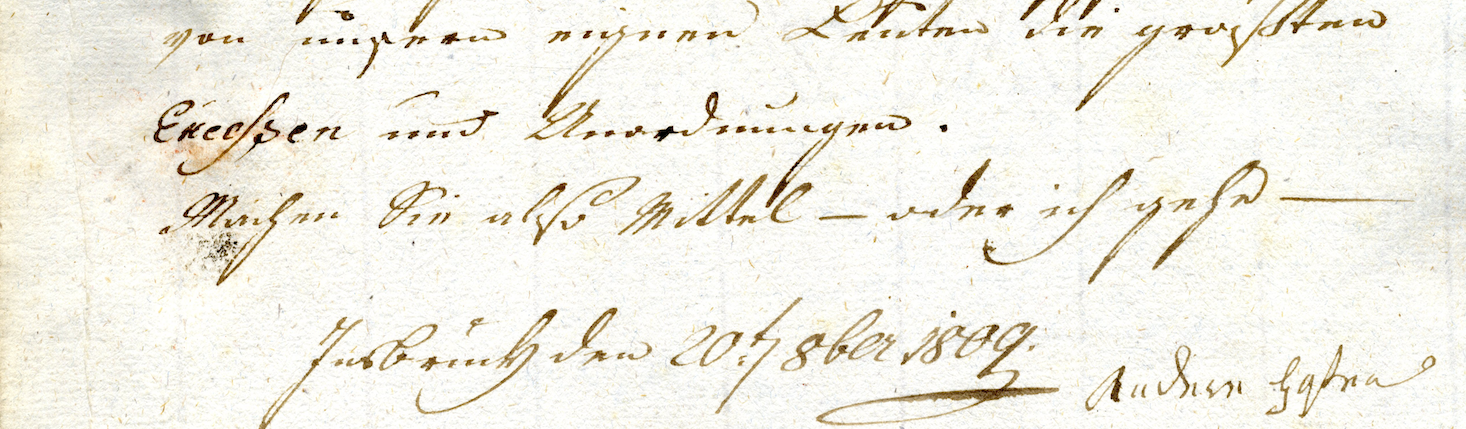 von unsern eignen Leuten die größten
Excessen und Unordnungen.
Machen Sie also Mittel – oder ich gehe –
Insbruck den 20t 8ber 1809.
Andere Hofera